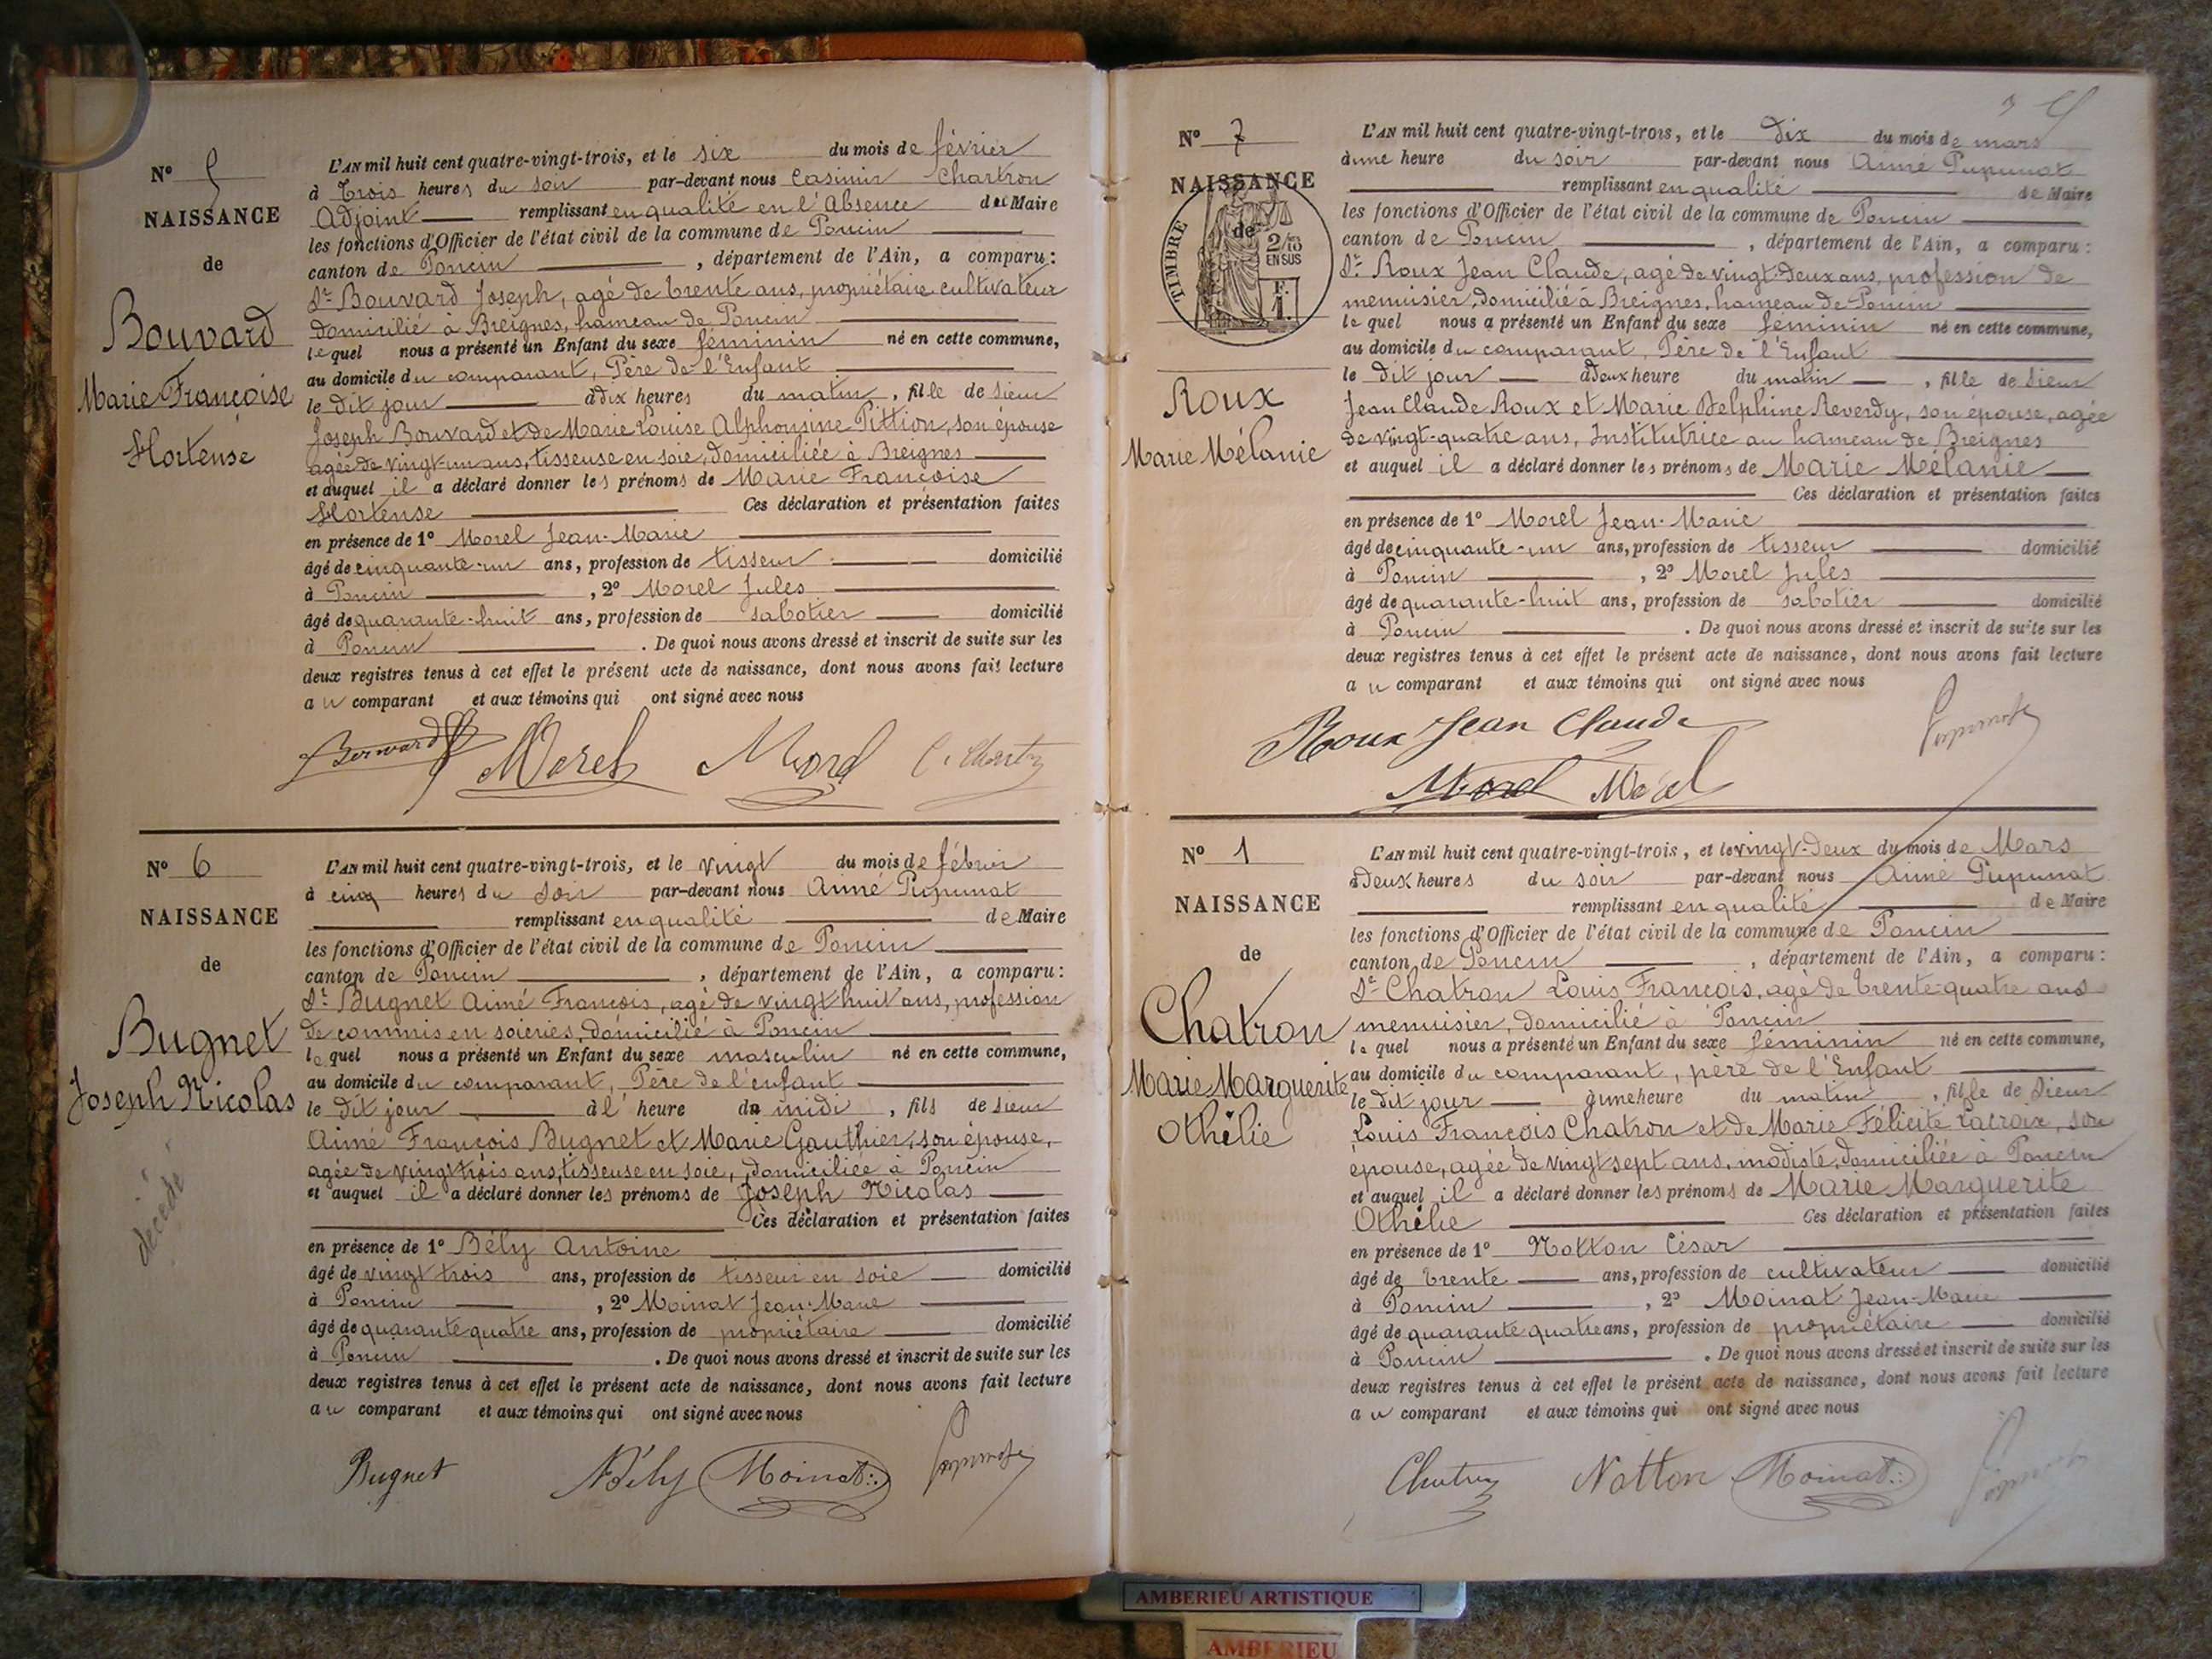 Nº 5
NAISSANCE
de
Bouvard
Marie Françoise
Hortense
L'AN mil huit cent quatre-vingt-trois, et le six du mois de février
à trois heures du soir par-devant nous Casimir Chartron
Adjoint remplissant en qualité en l'absence du Maire
les fonctions d'Officier de l'état civil de la commune de Poncin
canton de Poncin , département de l'Ain, a comparu :
Sr Bouvard Joseph, agé de trente ans, propriétaire cultivateur
domicilié à Breignes, hameau de Poncin
lequel nous a présenté un Enfant du sexe féminin né en cette commune,
au domicile du comparant, Père de l'Enfant
le dit jour à dix heures du matin, fille de Sieur
Joseph Bouvard et de Marie Louise Alphonsine Pittion, son épouse
agée de vingt-un ans, tisseuse en soie, domiciliée à Breignes
et auquel il a déclaré donner les prénoms de Marie Françoise
Hortense Ces déclaration et présentation faites
en présence de 1º Morel Jean-Marie
âgé de cinquante-un ans, profession de tisseur domicilié
à Poncin , 2º Morel Jules
âgé de quarante-huit ans, profession de sabotier domicilié
à Poncin . De quoi nous avons dressé et inscrit de suite sur les
deux registres tenus à cet effet le présent acte de naissance, dont nous avons fait lecture
au comparant et aux témoins qui ont signé avec nous
Morel Morel
Nº 6
NAISSANCE
de
Bugnet
Joseph Nicolas
décédé
L'AN mil huit cent quatre-vingt-trois, et le vingt du mois de février
à cinq heures du soir par-devant nous Aimé Pupunat
remplissant en qualité de Maire
les fonctions d'Officier de l'état civil de la commune de Poncin
canton de Poncin , département de l'Ain, a comparu :
Sr Bugnet Aimé François, agé de vingt huit ans, profession
de commis en soieries, domicilié à Poncin
lequel nous a présenté un Enfant du sexe masculin né en cette commune,
au domicile du comparant, Père de l'enfant
le dit jour à l' heure de midi , fils de Sieur
Aimé François Bugnet et Marie Gauthier, son épouse,
agée de vingt trois ans, tisseuse en soie, domiciliée à Poncin
et auquel il a déclaré donner les prénoms de Joseph Nicolas
Ces déclaration et présentation faites
en présence de 1º Bély Antoine
âgé de vingt trois ans, profession de tisseur en soie domicilié
à Poncin , 2º Moinat Jean-Marie
âgé de quarante quatre ans, profession de propriétaire domicilié
à Poncin . De quoi nous avons dressé et inscrit de suite sur les
deux registres tenus à cet effet le présent acte de naissance, dont nous avons fait lecture
au comparant et aux témoins qui ont signé avec nous
Bugnet Bély Moinat
Nº 7
NAISSANCE
de
TIMBRE
2/10
EN SUS
F.
1.
Roux
Marie Mélanie
L'AN mil huit cent quatre-vingt-trois, et le dix du mois de mars
à une heure du soir par-devant nous Aimé Pupunat
remplissant en qualité de Maire
les fonctions d'Officier de l'état civil de la commune de Poncin
canton de Poncin , département de l'Ain, a comparu :
Sr Roux Jean Claude, agé de vingt-deux ans, profession de
menuisier, domicilié à Breignes, hameau de Poncin
lequel nous a présenté un Enfant du sexe féminin né en cette commune,
au domicile du comparant, Père de l'Enfant
le dit jour à deux heure du matin , fille de Sieur
Jean Claude Roux et Marie Delphine Reverdy, son épouse, agée
de vingt-quatre ans, Institutrice au hameau de Breignes
et auquel il a déclaré donner les prénoms de Marie Mélanie
Ces déclaration et présentation faites
en présence de 1º Morel Jean-Marie
âgé de cinquante-un ans, profession de tisseur domicilié
à Poncin , 2º Morel Jules
âgé de quarante-huit ans, profession de sabotier domicilié
à Poncin . De quoi nous avons dressé et inscrit de suite sur les
deux registres tenus à cet effet le présent acte de naissance, dont nous avons fait lecture
au comparant et aux témoins qui ont signé avec nous
Roux Jean Claude
Morel Morel
Nº 1
NAISSANCE
de
Chatron
Marie Marguerite
Othélie
L'AN mil huit cent quatre-vingt-trois, et le vingt-deux du mois de Mars
à deux heures du soir par-devant nous Aimé Pupunat
remplissant en qualité de Maire
les fonctions d'Officier de l'état civil de la commune de Poncin
canton de Poncin , département de l'Ain, a comparu :
Sr Chatron Louis François, agé de trente-quatre ans
menuisier, domicilié à Poncin
lequel nous a présenté un Enfant du sexe féminin né en cette commune,
au domicile du comparant, père de l'Enfant
le dit jour à une heure du matin , fille de Sieur
Louis François Chatron et de Marie Félicité Lacroix, son
épouse, agée de vingt sept ans, modiste, domiciliée à Poncin
et auquel il a déclaré donner les prénoms de Marie Marguerite
Othélie Ces déclaration et présentation faites
en présence de 1º Notton César
âgé de trente ans, profession de cultivateur domicilié
à Poncin , 2º Moinat Jean-Marie
âgé de quarante quatre ans, profession de propriétaire domicilié
à Poncin . De quoi nous avons dressé et inscrit de suite sur les
deux registres tenus à cet effet le présent acte de naissance, dont nous avons fait lecture
au comparant et aux témoins qui ont signé avec nous
Notton Moinat
AMBERIEU ARTISTIQUE
AMBERIEU